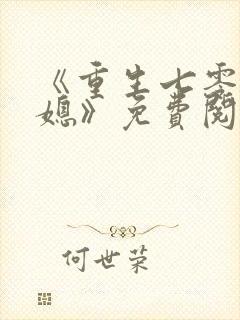 《重生七零
媳》免費閱
何世荣